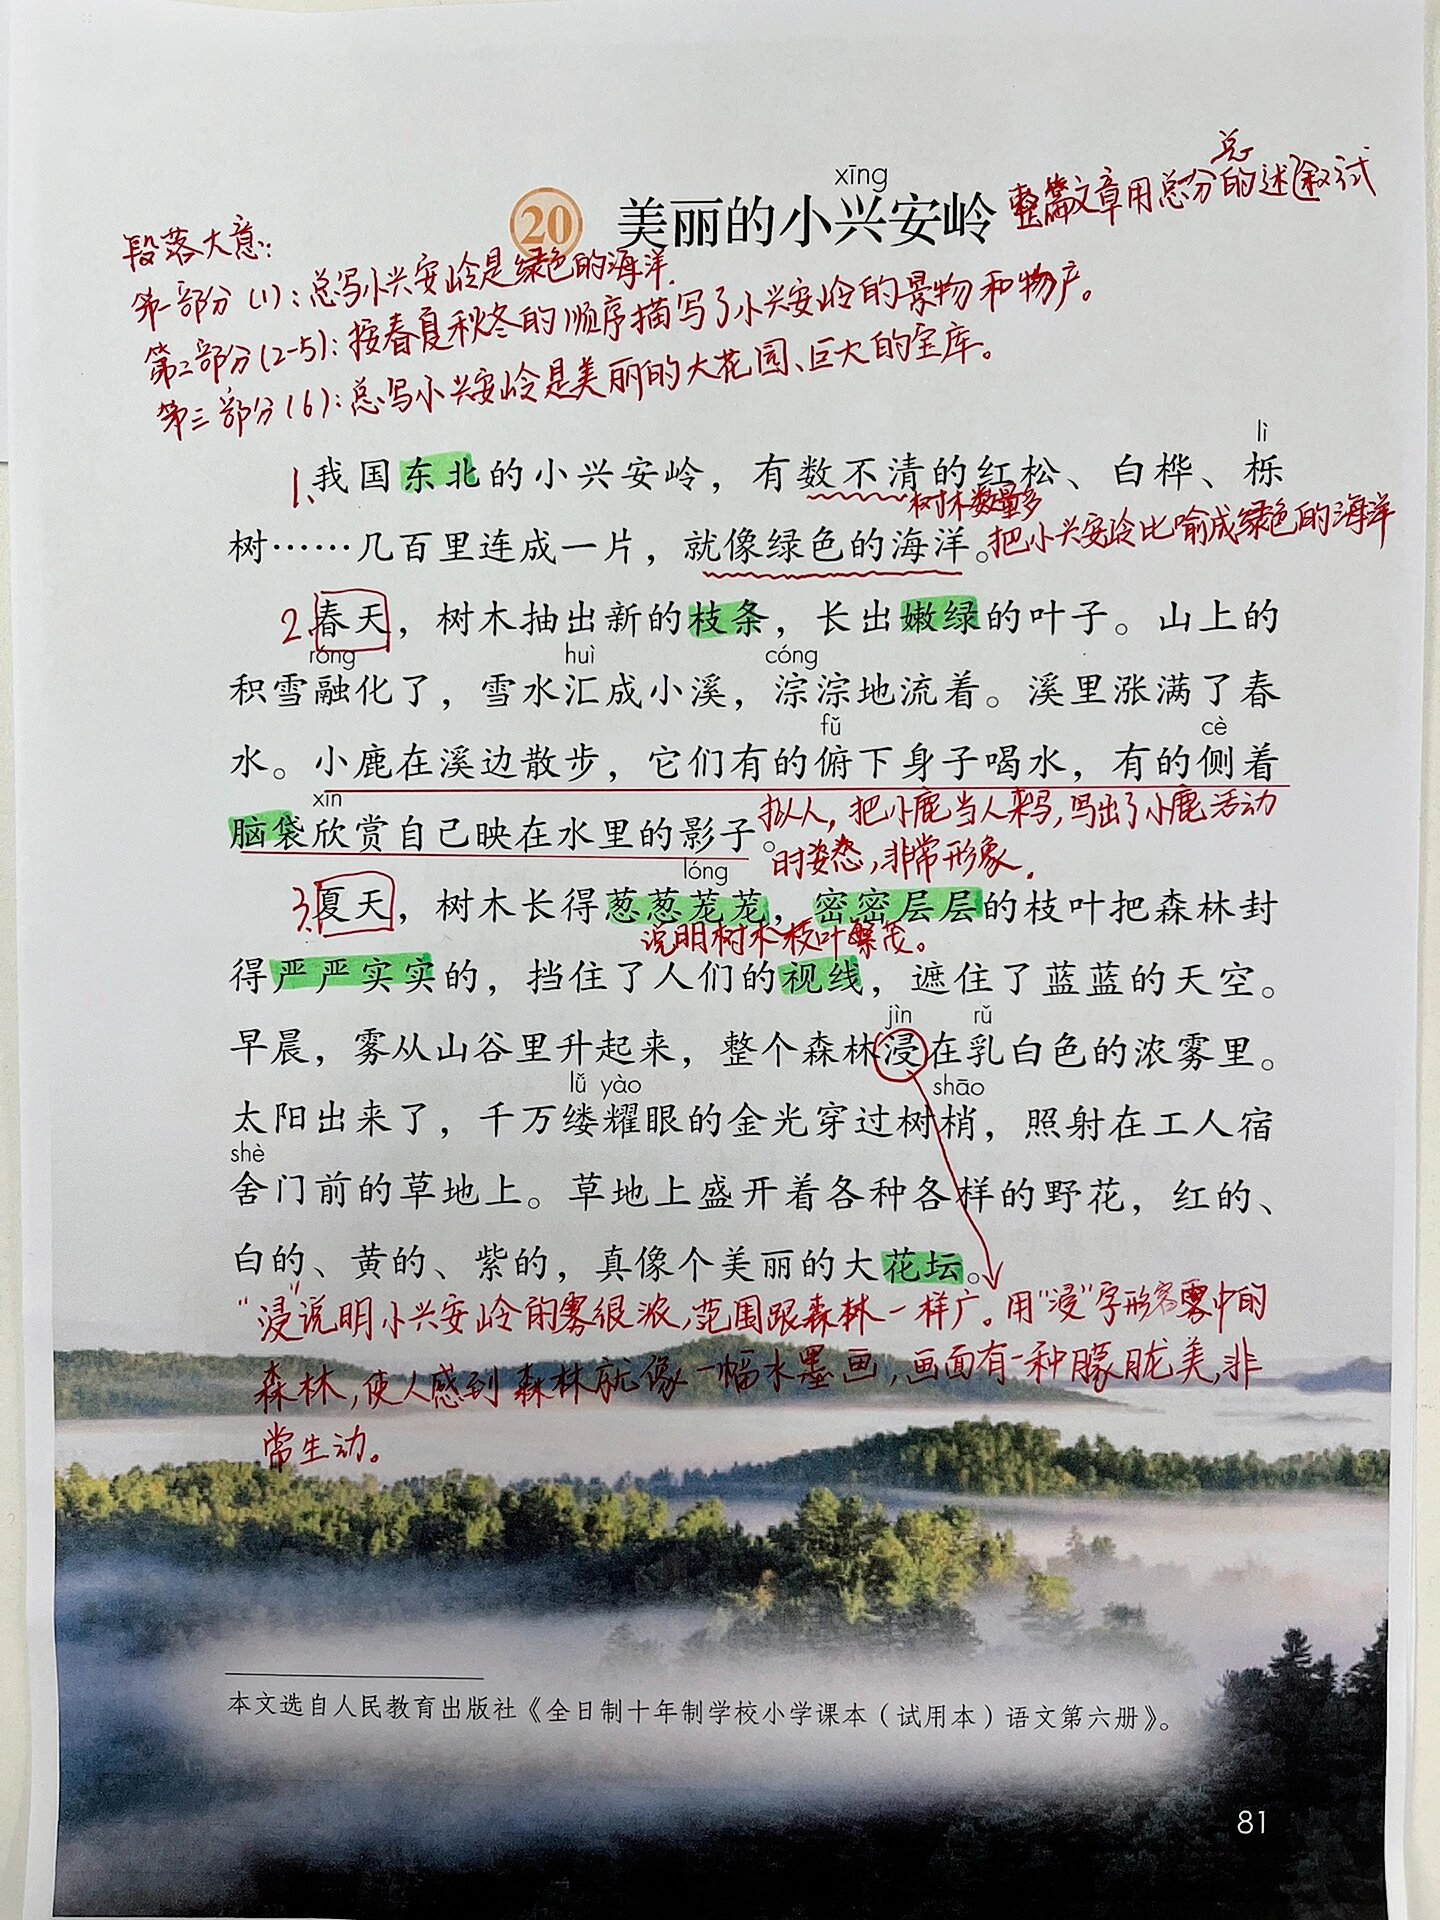 xīng
总
20 美丽的小兴安岭 整篇文章用总分的述叙式
段落大意:
第一部分(1):总写小兴安岭是绿色的海洋.
第二部分(2-5):按春夏秋冬的顺序描写了小兴安岭的景物和物产。
第三部分(6):总写小兴安岭是美丽的大花园、巨大的宝库。
lì
1.我国东北的小兴安岭，有数不清的红松、白桦、栎
树木数量多
树……几百里连成一片，就像绿色的海洋。把小兴安岭比喻成绿色的海洋
2.春天，树木抽出新的枝条，长出嫩绿的叶子。山上的
róng huì cóng
积雪融化了，雪水汇成小溪，淙淙地流着。溪里涨满了春
fǔ cè
水。小鹿在溪边散步，它们有的俯下身子喝水，有的侧着
xīn
脑袋欣赏自己映在水里的影子。拟人，把小鹿当人来写，写出了小鹿活动
时姿态，非常形象.
lóng
3.夏天，树木长得葱葱茏茏，密密层层的枝叶把森林封
说明树木枝叶繁茂。
得严严实实的，挡住了人们的视线，遮住了蓝蓝的天空。
jìn rǔ
早晨，雾从山谷里升起来，整个森林浸在乳白色的浓雾里。
lǚ yào shāo
太阳出来了，千万缕耀眼的金光穿过树梢，照射在工人宿
shè
舍门前的草地上。草地上盛开着各种各样的野花，红的、
白的、黄的、紫的，真像个美丽的大花坛。
“浸”说明小兴安岭的雾很浓，范围跟森林一样广。用“浸”字形容雾中的
森林，使人感到森林就像一幅水墨画，画面有一种朦胧美，非
常生动。
本文选自人民教育出版社《全日制十年制学校小学课本（试用本）语文第六册》。
81